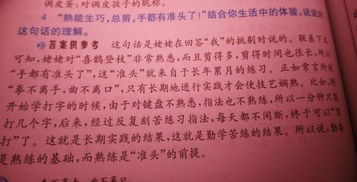 调皮蛋：对调皮孩子的昵称。
4 “熟能生巧，总剪，手都有准头了！”结合你生活中的体验，说说
这句话的理解。
答案供参考 这句话是姥姥在回答“我”的挑剔时说的。联系下文
可知，姥姥对“喜鹊登枝”非常熟悉，而且剪得多，剪得时间也很长，所以
“手都有准头了”，这“准头”就来自于长年累月的练习。正如常言所说
“拳不离手，曲不离口”，只有长期地进行实践才会使技艺娴熟。比如，刚
开始学打字的时候，由于对键盘不熟悉，指法也不熟练，所以一分钟只能
打几个字，后来，经过反复刻苦练习指法，每天都不间断，终于可以“盲
打”了。这就是长期实践的结果，这就是勤学苦练的结果。所以说，勤
是熟练的基础，而熟练是“准头”的前提。